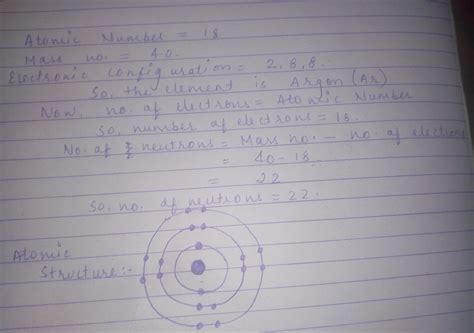 Atomic Number = 18
Mass no. = 40.
Electronic configuration = 2, 8, 8.
So, the element is Argon (Ar)
Now, no. of electrons = Atomic Number
So, number of electrons = 18.
No. of neutrons = Mass no. - no. of electrons
= 40 - 18
= 22
So, no. of neutrons = 22.
Atomic
Structure:-